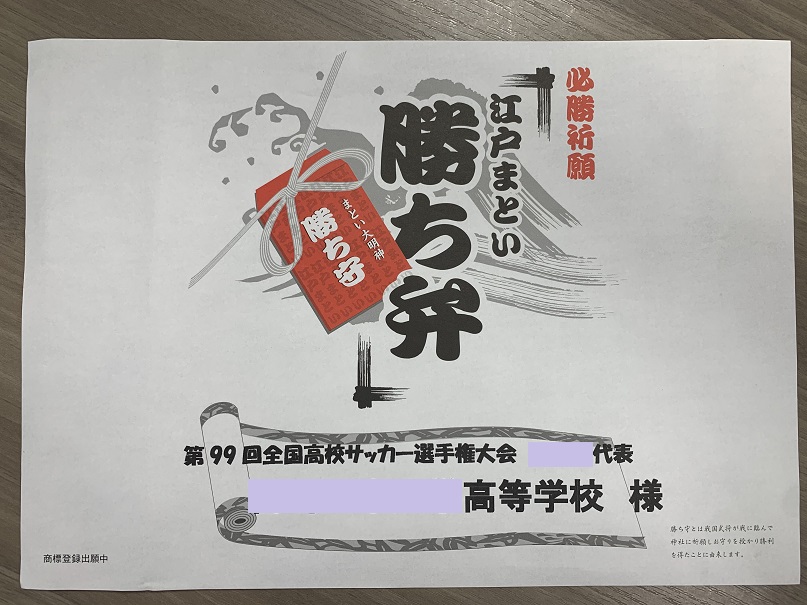 必勝祈願
江戸まとい
勝ち弁
まとい大明神
勝ち守
第99回全国高校サッカー選手権大会 代表
高等学校 様
勝ち守とは戦国武将が戦に臨んで
神社に祈願しお守りを授かり勝利
を得たことに由来します。
商標登録出願中